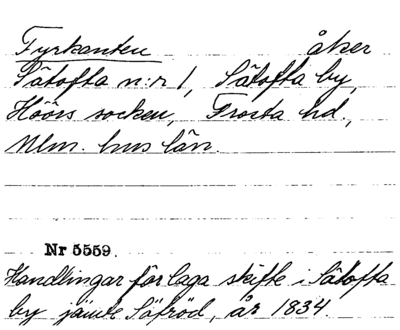 Fyrkanten åker
Sätofta n:r 1, Sätofta by,
Höörs socken, Frosta hd.,
Mlm. hus län.
Nr 5559.
Handlingar för laga skifte i Sätofta
by jämte Säfröd, år 1834.